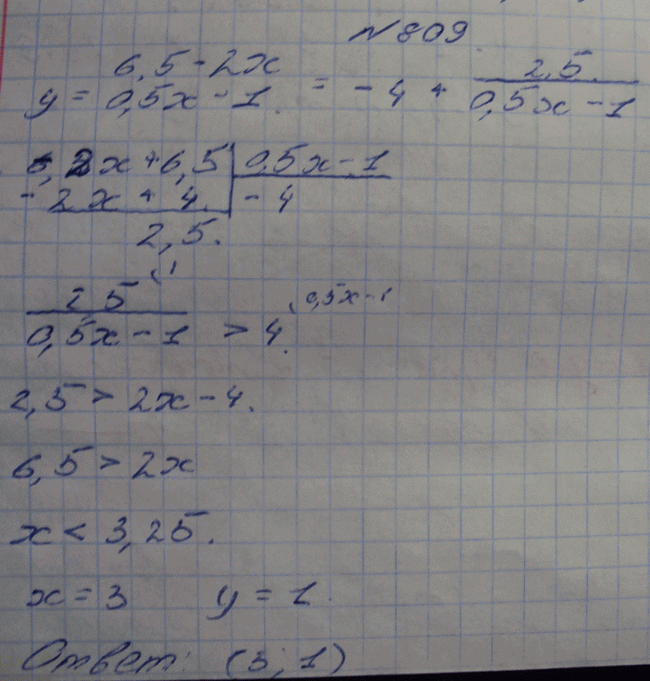 №809
y = 6,5 - 2x / 0,5x - 1 = - 4 + 2,5 / 0,5x - 1
- 2x + 6,5 | 0,5x - 1
- 2x + 4 | - 4
2,5.
2,5 / 0,5x - 1 > 4 0,5x - 1
2,5 > 2x - 4.
6,5 > 2x
x < 3,25.
x = 3 y = 1.
Ответ: (3; 1)